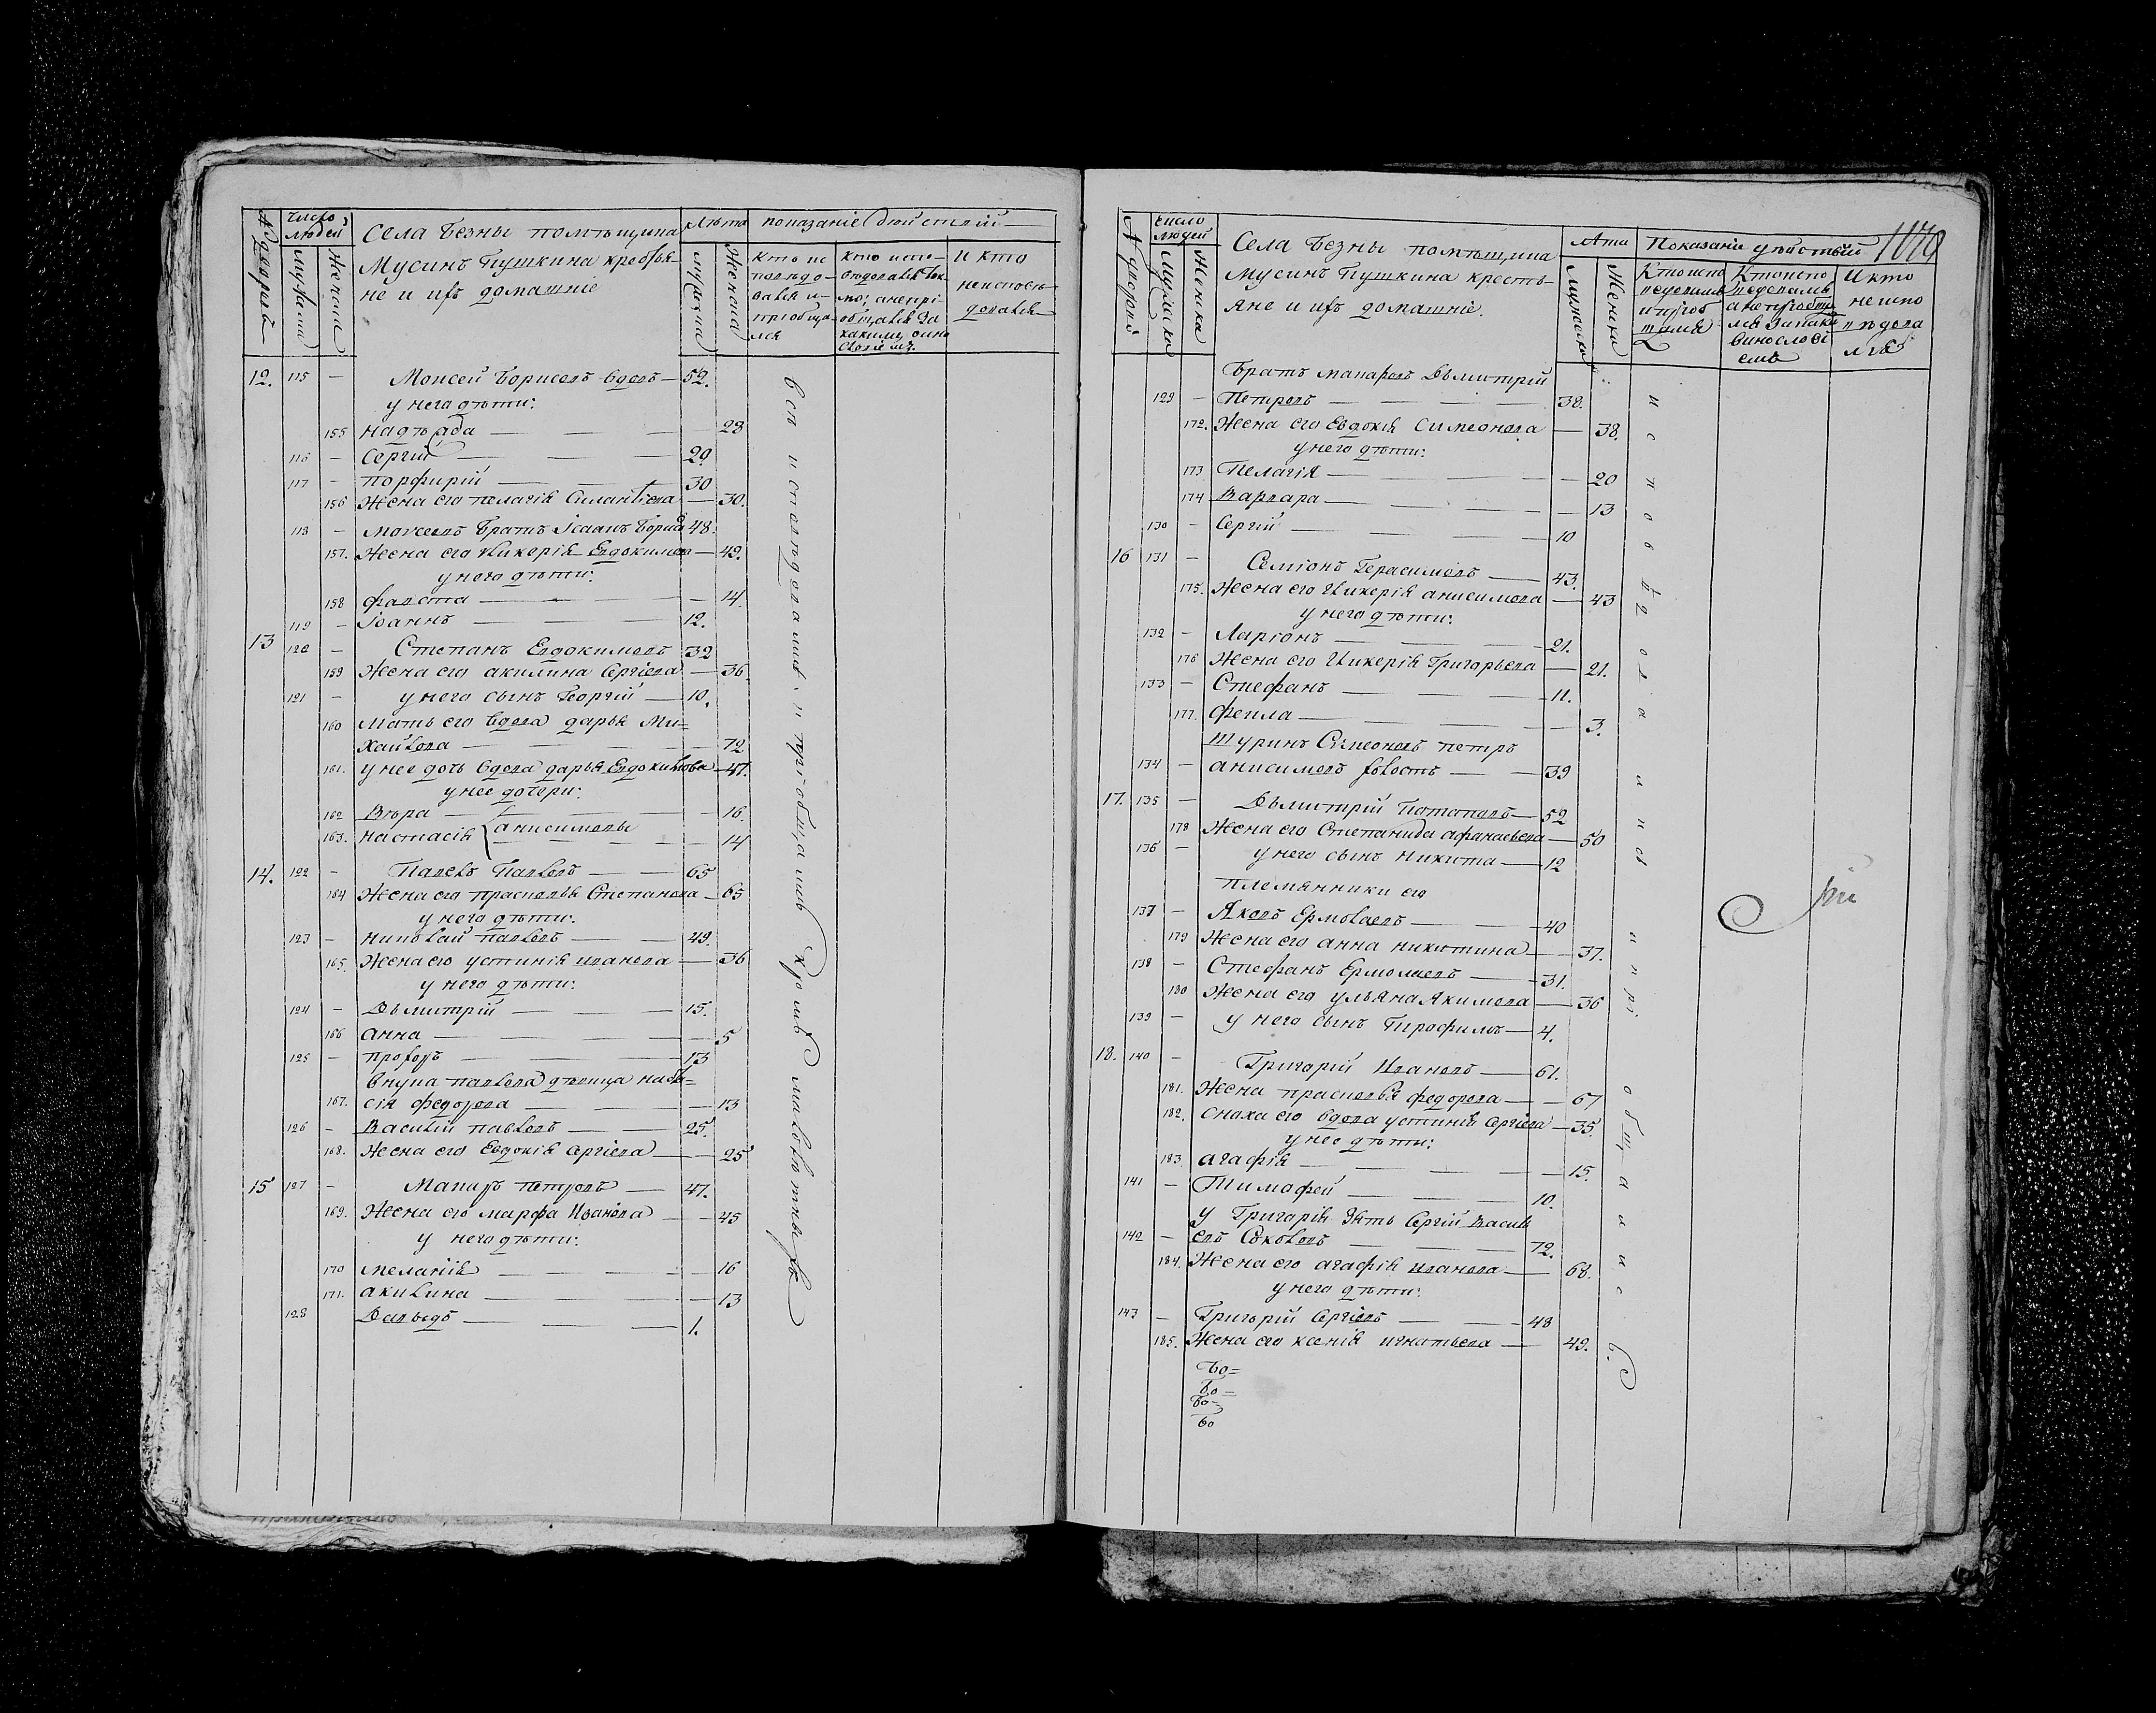 № дворовъ
число людей
Мужеска
Женска
Села Безны помѣщика
Мусинъ Пушкина крестья-
не и ихъ домашніе
Лѣта
мужска
Женска
показаніе дѣйствій
кто ис
повѣдо-
вался и-
пріобща-
лся
кто испо-
вѣдовался ток
мо; а непрі-
общался За
какимъ вино
словіемъ.
и кто
неисповѣ-
довался
12. 115 - Моисей Борисовъ вдовъ - 52.
у него дѣти:
155 надѣжда - 28
116 - Сергій - 29
117 - порфирій - 30
156 Жена его пелагія Силантіева - 30.
118 - моисеевъ братъ Іоаннъ Борисо 48.
157. Жена его Гликерія Евдокимова - 49.
у него дѣти:
158 фавста - 14.
119 - Іоаннъ - 12.
13 120 - Степанъ Евдокимовъ 32
159 Жена его акилина Сергіева - 36
121 - у него сынъ Георгій - 10.
160 мать его вдова дарья Ми=
хайлова - 72
161. у нее дочь вдова дарья Евдокимова - 47.
у нее дочери:
162 Вѣра - 16.
163. настасія анисимовы - 14
14. 122 - Павелъ Павловъ - 65
164 Жена его прасковья Степанова - 65
у него дѣти:
123 - николай павловъ - 49.
165. Жена его устинія иванова - 36
у него дѣти:
124 - Дѣмитрій - 15.
166 анна - 5
125 - прохоръ - 13
внука павлова дѣвица наста=
167. сія федорова - 13
126 - Василій павловъ - 25.
168. Жена его Евдокія Сергіева - 25
15 127 - Макаръ петровъ - 47.
169. Жена его марфа Иванова - 45
у него дѣти:
170 меланія - 16
171. акилина - 13
128 Давыдъ - 1.
всѣ исповѣдовались и пріобщались кромѣ малолѣтныхъ
1119
№ дворовъ
число людей
Мужеска
Женска
Села Безны помѣщика
Мусинъ Пушкина кресть-
яне и ихъ домашніе.
Лѣта
Мужеска
Женска
Показаніе дѣйствій
Кто испо
вѣдовались
и пріоб
щался
Кто испо
вѣдовались
а непріобща
лся За каки
винослові
емъ
И кто
не испо
вѣдова
лся
Братъ макаровъ Дѣмитрій
129 - Петровъ - 38.
172. Жена его Евдокія Симеонова - 38.
у него дѣти:
173 Пелагія - 20
174 Варвара - 13
130 - Сергій - 10
16 131 - Семіонъ Герасимовъ - 43.
175. Жена его Гликерія анисимова - 43
у него дѣти:
132 - Ларіонъ - 21.
176 Жена его Гликерія Григорьева - 21.
133 - Стефанъ - 11.
177. Фекла - 3.
Шуринъ Симеоновъ петръ
134 - анисимовъ холостъ - 39
17. 135 - Дѣмитрій Потаповъ - 52
178 Жена его Степанида афанасьева - 50
136 - у него сынъ Никита - 12
племянники его
137 - Яковъ Ермолаевъ - 40
179 Жена его анна никитина - 37.
138 - Стефанъ Ермолаевъ - 31.
180 Жена его ульяна Якимова - 36
139 - у него сынъ Трофимъ - 4.
18. 140 - Григорій Ивановъ - 61.
181. Жена прасковья федорова - 67
182. сноха его вдова устинія Сергіева - 35.
у нее дѣти:
183 агафія - 15.
141 - Тимофей - 10.
У Григорія Зять Сергій Васи
142 - евъ Соколовъ - 72.
184. Жена его агафія иванова - 68.
у него дѣти:
143 - Григорій Сергіевъ - 48
185. Жена его ксенія игнатьева - 49.
Бо=
Бо=
Бо=
Бо
исповѣдовались и пріобщались
рій